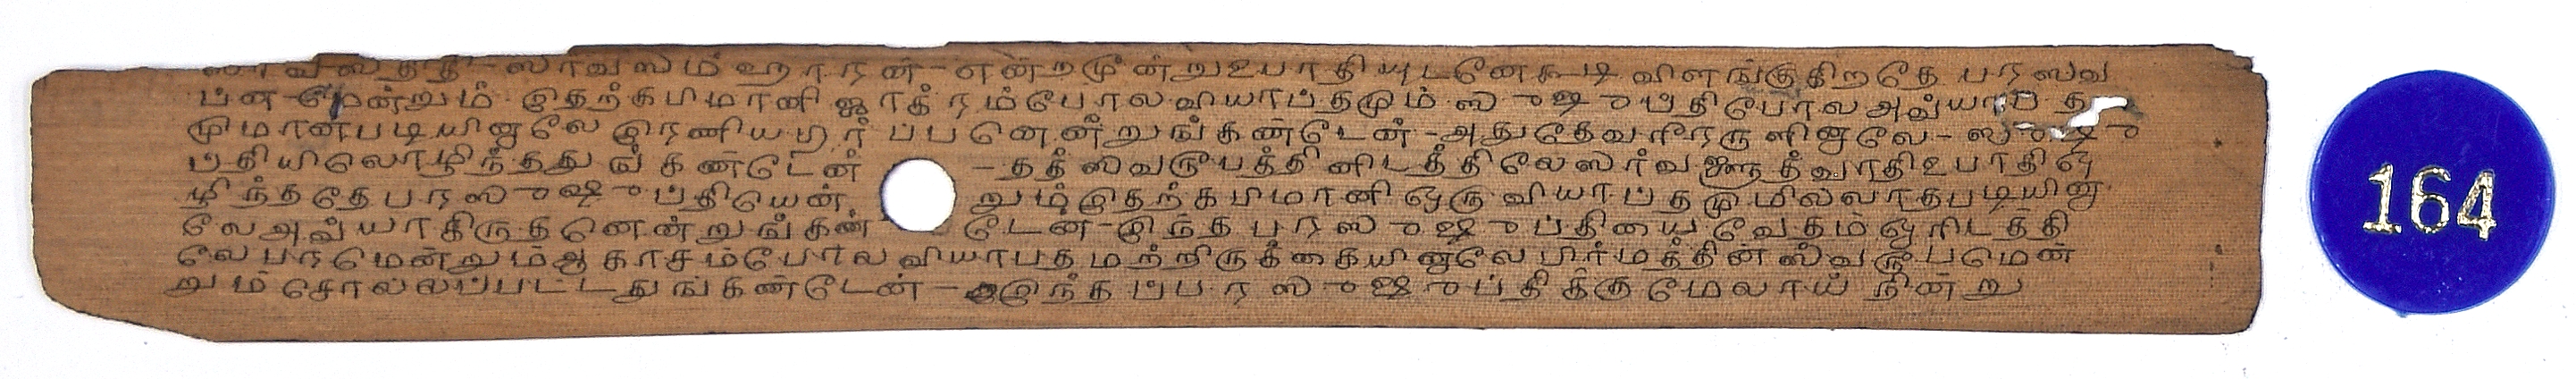 ஸர்வஸ்திதி-ஸர்வஸம்ஹாரன்-என்றமூன்றுஉபாதியுடனேகூடி விளங்குகிறதே பரஸ்வ
ப்ன மென்றும் இதற்கபிமானி ஜாக்ரம்போலவியாப்தமும் ஸுஷுப்திபோல அவ்யாப்த
முமானபடியினாலே இரணியகற்ப்பனென்றுங்கண்டேன்-அதுதேவரீரருளினாலே-ஸுஷு
ப்தியிலொழிந்தது ங் கண்டேன் -தத்ஸ்வரூபத்தினிடத்திலேஸர்வஜ்ஞத்வாதிஉபாதிஒ
ழிந்ததேபரஸுஷுப்தியென் றும்இதற்கபிமானி ஒருவியாப்தமுமில்லாதபடியினா
லேஅவ்யாகிருதனென்றுங்கண் டேன்-இந்த பரஸுஷுப்தியை வேதம் ஒரிடத்தி
லேபரமென்றும்ஆகாசம்போல வியாபதமற்றிருக்கையினாலே பிர்மத்தின் ஸ்வரூபமென்
றும் சொல்லப்பட்டதுங்கண்டேன்-இந்தப்பரஸுஷுப்திக்குமேலாய் நின்று
164